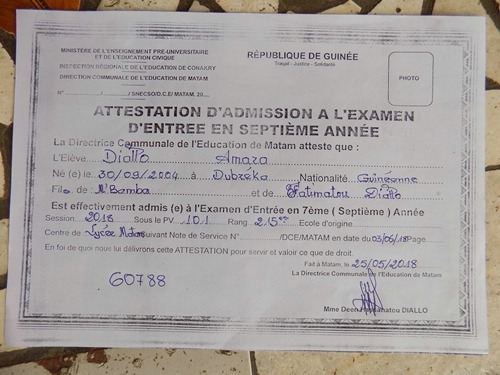 MINISTERE DE L'ENSEIGNEMENT PRE-UNIVERSITAIRE
ET DE L'EDUCATION CIVIQUE
INSPECTION RÉGIONALE DE L'EDUCATION DE CONAKRY
DIRECTION COMMUNALE DE L'EDUCATION DE MATAM
N° / / SNECSO/D.C.E/ MATAM, 20
RÉPUBLIQUE DE GUINÉE
Travail - Justice - Solidarité
PHOTO
ATTESTATION D'ADMISSION A L'EXAMEN
D'ENTREE EN SEPTIÈME ANNÉE
La Directrice Communale de l'Education de Matam atteste que :
L'Elève Diallo Amara
Né (e) le 30/09/2004 à Dubréka Nationalité Guinéenne
Fils de M'Bemba et de Fatimatou Diallo
Est effectivement admis (e) à l'Examen d'Entrée en 7ème ( Septième ) Année
Session 2018 Sous le PV 101 Rang 215 Ecole d'origine
Centre de Lycée Matam suivant Note de Service N° /DCE/MATAM en date du 03/06/18 Page
En foi de quoi nous lui délivrons cette ATTESTATION pour servir et valoir ce que de droit.
Fait à Matam, le 25/05/2018
La Directrice Communale de l'Education de Matam
60788
Mme DIALLO